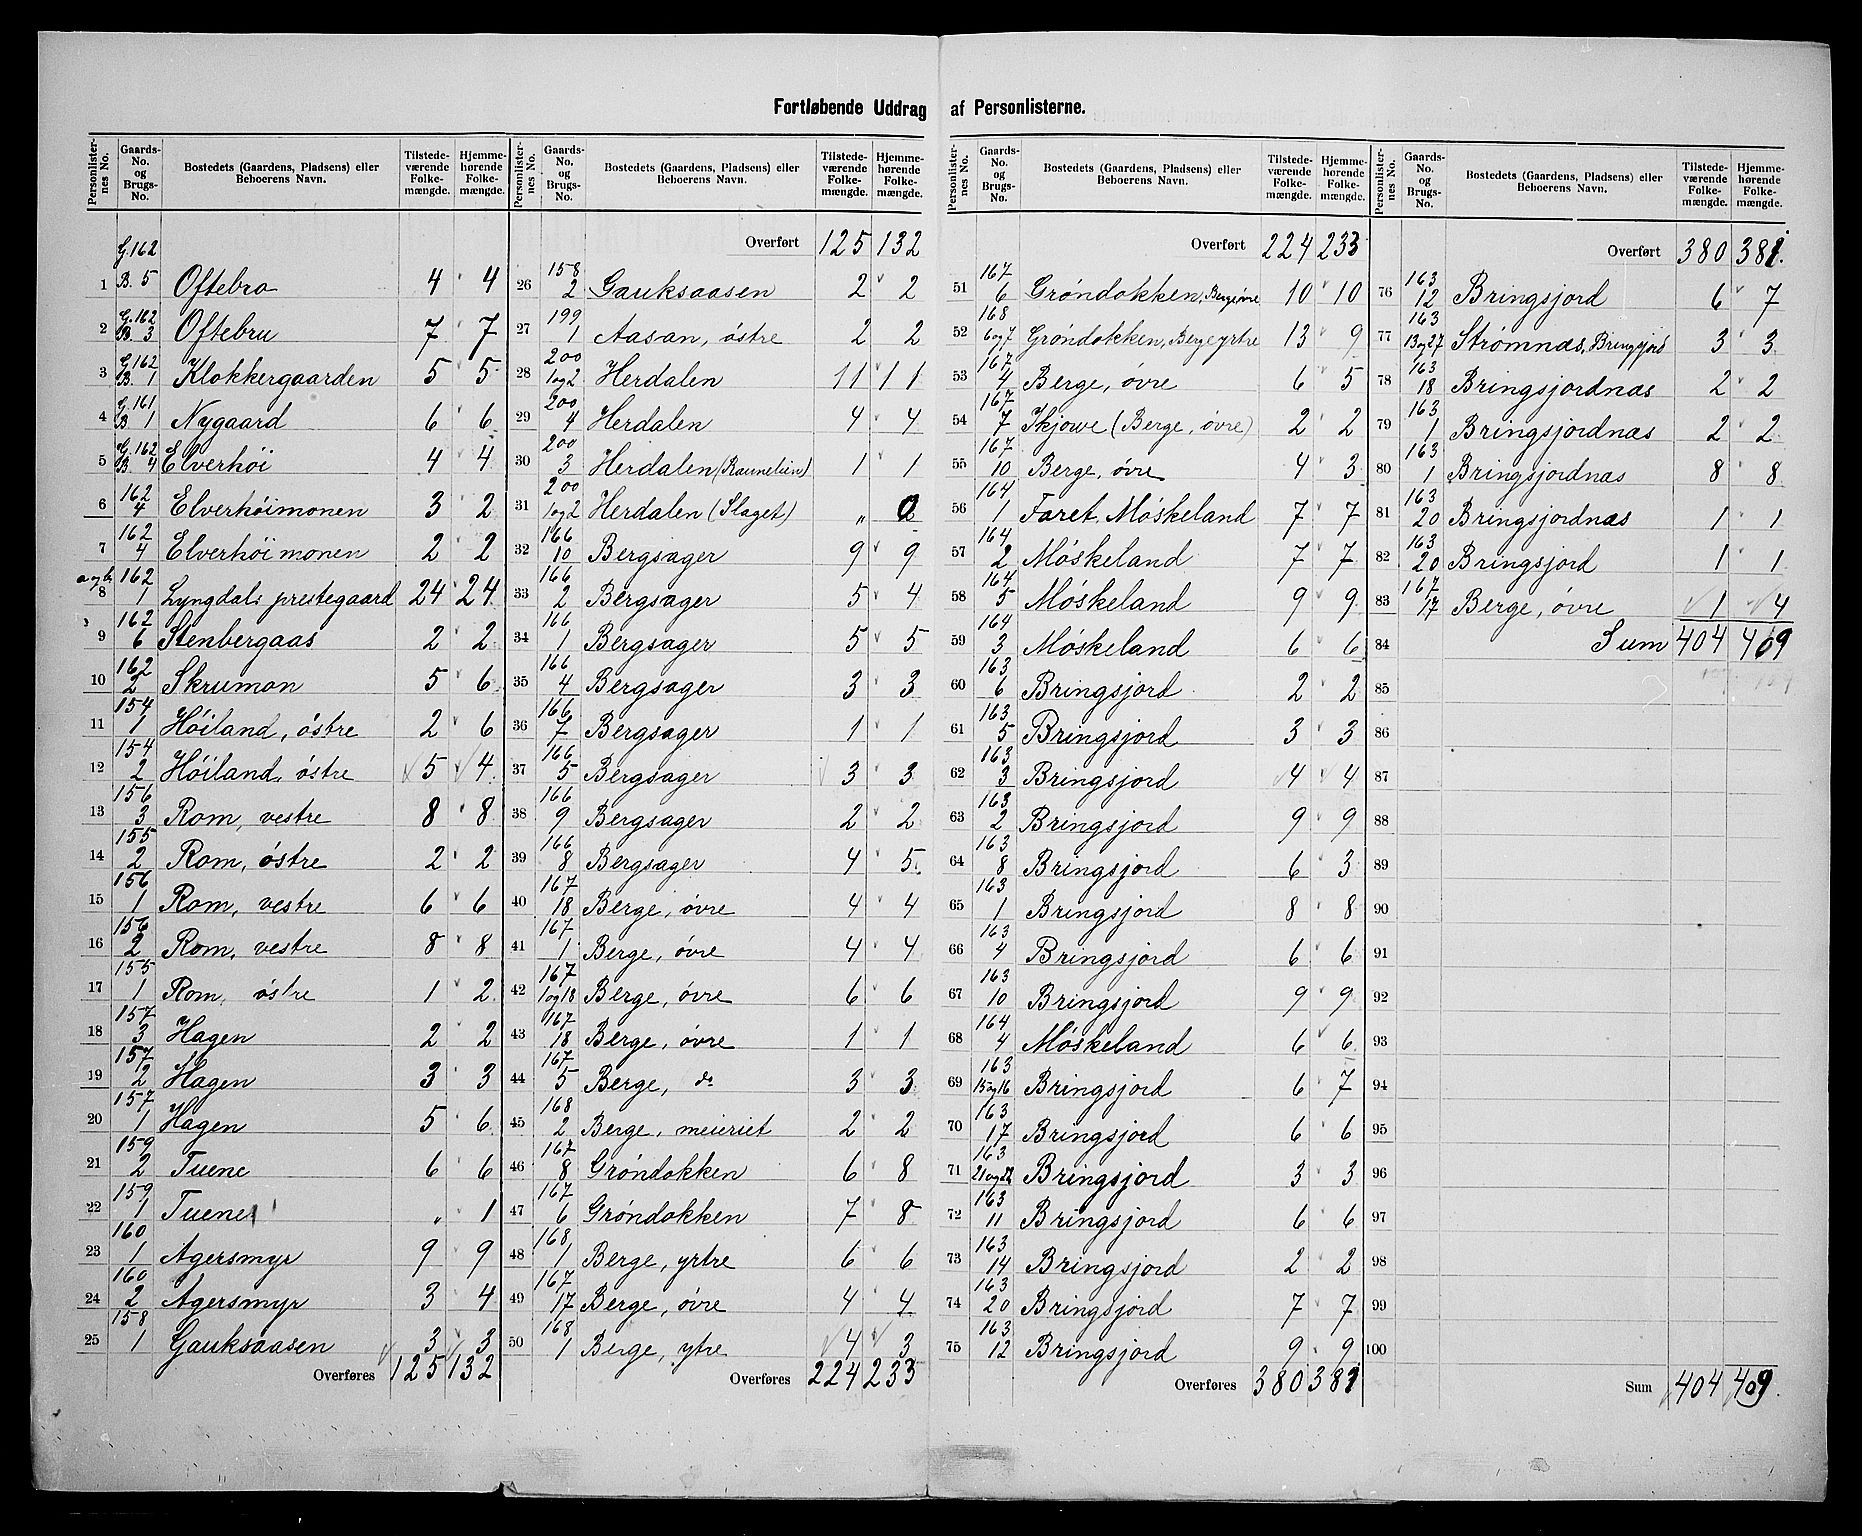 Fortløbende Uddrag af Personlisterne.
Personlister-nes No. Gaards-No. og Brugs-No. Bostedets (Gaardens, Pladsens) eller Beboerens Navn. Tilstede-værende Folke-mængde. Hjemme-hørende Folke-mængde.
1 G.162 B.5 Oftebro 4 4
2 G.162 B.3 Oftebru 7 7
3 G.162 B 1 Klokkergaarden 5 5
4 G.161 B 1 Nygaard 6 6
5 G.162 B.4 Elverhöi 4 4
6 162 4 Elverhöimonen 3 2
7 162 4 Elverhöimonen 2 2
a og b 8 162 1 Lyngdals prestegaard 24 24
9 162 6 Stenbergaas 2 2
10 162 2 Skrumon 5 6
11 154 1 Höiland, östre 2 6
12 154 2 Höiland, östre 5 4
13 156 3 Rom, vestre 8 8
14 155 2 Rom, östre 2 2
15 156 1 Rom, vestre 6 6
16 156 2 Rom, vestre 8 8
17 155 1 Rom, östre 1 2
18 157 3 Hagen 2 2
19 157 2 Hagen 3 3
20 157 1 Hagen 5 6
21 159 2 Tuene 6 6
22 159 1 Tuene " 1
23 160 1 Agersmyr 9 9
24 160 2 Agersmyr 3 4
25 158 1 Gauksaasen 3 3
Overføres 125 132
Personlister-nes No. Gaards-No. og Brugs-No. Bostedets (Gaardens, Pladsens) eller Beboerens Navn. Tilstede-værende Folke-mængde. Hjemme-hørende Folke-mængde.
Overført 125 132
26 158 2 Gauksaasen 2 2
27 199 1 Aasan, östre 2 2
28 200 1og2 Herdalen 11 11
29 200 4 Herdalen 4 4
30 200 3 Herdalen (Raunelien) 1 1
31 200 1og2 Herdalen (Slaget) " 0
32 166 10 Bergsager 9 9
33 166 2 Bergsager 5 4
34 166 1 Bergsager 5 5
35 166 4 Bergsager 3 3
36 166 7 Bergsager 1 1
37 166 5 Bergsager 3 3
38 166 9 Bergsager 2 2
39 166 8 Bergsager 4 5
40 167 18 Berge, övre 4 4
41 167 1 Berge, övre 4 4
42 167 1og18 Berge, övre 6 6
43 167 18 Berge, övre 1 1
44 167 5 Berge, do 3 3
45 168 2 Berge, meieriet 2 2
46 167 8 Gröndokken 6 8
47 167 6 Gröndokken 7 8
48 168 1 Berge, yrtre 6 6
49 167 17 Berge, övre 4 4
50 168 1 Berge, ytre 4 3
Overføres 224 233
Personlister-nes No. Gaards-No. og Brugs-No. Bostedets (Gaardens, Pladsens) eller Beboerens Navn. Tilstede-værende Folke-mængde. Hjemme-hørende Folke-mængde.
Overført 224 233
51 167 6 Gröndokken, 10 10
52 168 6og7 Gröndokken, Berge yrtre 13 9
53 167 4 Berge, övre 6 5
54 167 7 (Berge, övre) 2 2
55 167 10 Berge, övre 4 3
56 164 1 Faret, Möskeland 7 7
57 164 2 Möskeland 7 7
58 164 5 Möskeland 9 9
59 164 3 Möskeland 6 6
60 163 6 Bringsjord 2 2
61 163 5 Bringsjord 3 3
62 163 3 Bringsjord 4 4
63 163 2 Bringsjord 9 9
64 163 8 Bringsjord 6 3
65 163 1 Bringsjord 8 8
66 163 4 Bringsjord 6 6
67 163 10 Bringsjord 9 9
68 164 4 Möskeland 6 6
69 163 15og16 Bringsjord 6 7
70 163 17 Bringsjord 6 6
71 163 21og22 Bringsjord 3 3
72 163 11 Bringsjord 6 6
73 163 14 Bringsjord 2 2
74 163 20 Bringsjord 7 7
75 163 12 Bringsjord 9 9
Overføres 380 381
Personlister-nes No. Gaards-No. og Brugs-No. Bostedets (Gaardens, Pladsens) eller Beboerens Navn. Tilstede-værende Folke-mængde. Hjemme-hørende Folke-mængde.
Overført 380 381.
76 163 12 Bringsjord 6 7
77 163 13og27 Strömnas, Bringsjord 3 3
78 163 18 Bringsjordnas 2 2
79 163 1 Bringsjordnas 2 2
80 163 1 Bringsjordnas 8 8
81 163 20 Bringsjordnas 1 1
82 163 20 Bringsjord 1 1
83 167 17 Berge, övre 1 4
84 Sum 404 409
85
86
87
88
89
90
91
92
93
94
95
96
97
98
99
100
Sum 404 409